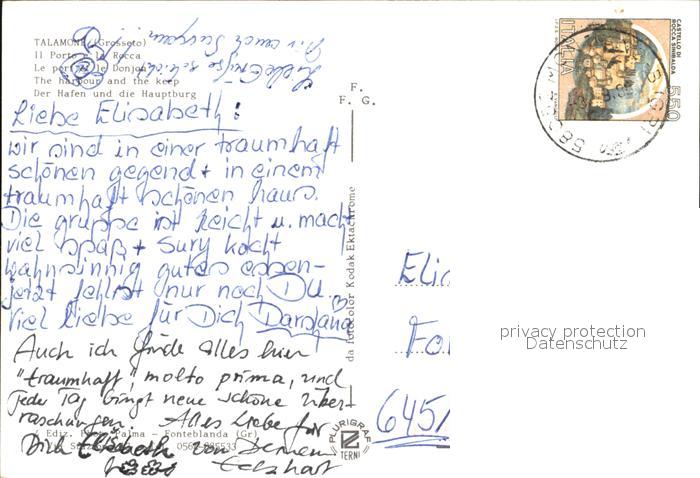 TALAMONE (Grosseto)
Il Porto e la Rocca
Le port et le Donjon
The harbour and the keep
Der Hafen und die Hauptburg
F.
F. G.
Liebe Elisabeth:
wir sind in einer traumhaft
schönen gegend + in einem
traumhaft schönen haus.
Die gruppe ist leicht u. macht
viel spaß + Sury kocht
wahnsinnig gutes essen-
jetzt fehlst nur noch DU.
Viel Liebe für Dich Darshana
Auch ich finde alles hier
"traumhaft", molto prima, und
jeder Tag bringt neue schöne Über-
raschungen. Alles Liebe für
Dich Elisabeth von Deinem
Eckhart
Ediz. Palma - Fonteblanda (Gr)
da fotocolor Kodak Ektachrome
PLURIGRAF
TERNI
ITALIA
CASTELLO DI
ROCCA SINIBALDA
550
Elis
For
6451
privacy protection
Datenschutz